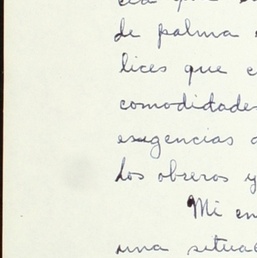 de palma
lices que
comodidades
exigencias
dos obreros y
Mi en
una situa